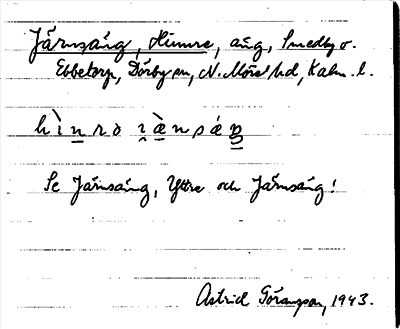 Järnsäng, Hinnre, äng, Smedby o.
Ebbetorp, Dörby sn, N. Möre hd, Kalm. l.
hìnrɔ ı̯æ̀nsáŋ
Se Järnsäng, Yttre och Järnsäng!
Astrid Göransson, 1943.